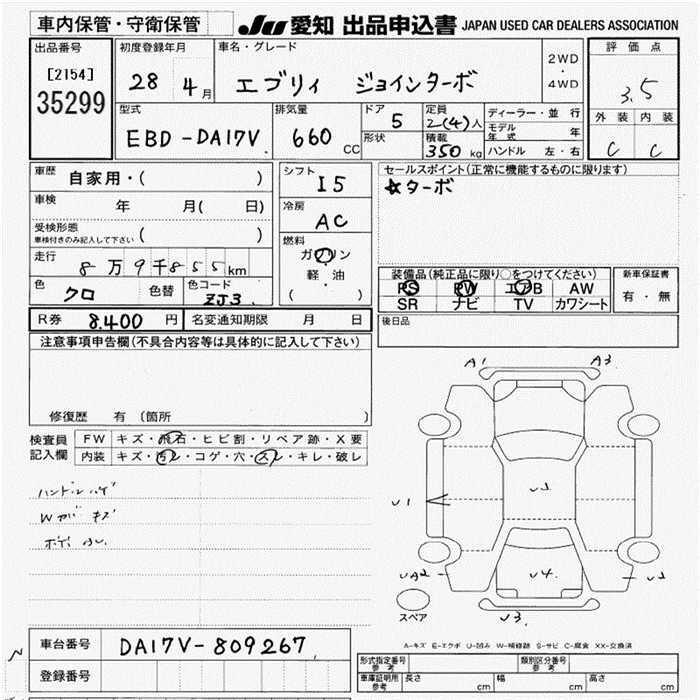 車内保管・守衛保管 JU 愛知 出品申込書 JAPAN USED CAR DEALERS ASSOCIATION
出品番号 初度登録年月 車名・グレード 評価点
[2154] 28 4月 エブリィ ジョインターボ 2WD・4WD 3.5
35299
型式 排気量 ドア 5 定員 2(4)人 ディーラー・並行 外装 内装
EBD-DA17V 660 CC 形状 積載 350 kg モデル年式 年 C C
ハンドル 左・右
車歴 自家用・( ) シフト I5 セールスポイント(正常に機能するものに限ります)
☆ターボ
車検 年 月( 日) 冷房 AC
受検形態
車検付きのみ記入して下さい ( ) 燃料 ガソリン
軽・油
( )
走行 8万9千855km 装備品(純正品に限り○をつけてください) 新車保証書
色 クロ 色替 色コード ZJ3 PS PW エアB AW 有・無
SR ナビ TV カワシート
R券 8,400 円 名変通知期限 月 日 後日品
注意事項申告欄(不具合内容等は具体的に記入して下さい)
修復歴 有(箇所 )
A1 A3
検査員記入欄 FW キズ・飛石・ヒビ割・リペア跡・X要
内装 キズ・汚レ・コゲ・穴・スレ・キレ・破レ
ハンドルハゲ
Wカバーキズ
U1
UA2 U4 U2
U3
スペア
車台番号 DA17V-809267
登録番号
A-キズ E-エクボ U-凹み W-補修跡 S-サビ C-腐食 XX-交換済
形式指定番号 参考 類別区分番号 参考
車庫証明用 参考 長さ cm 幅 cm 高さ cm